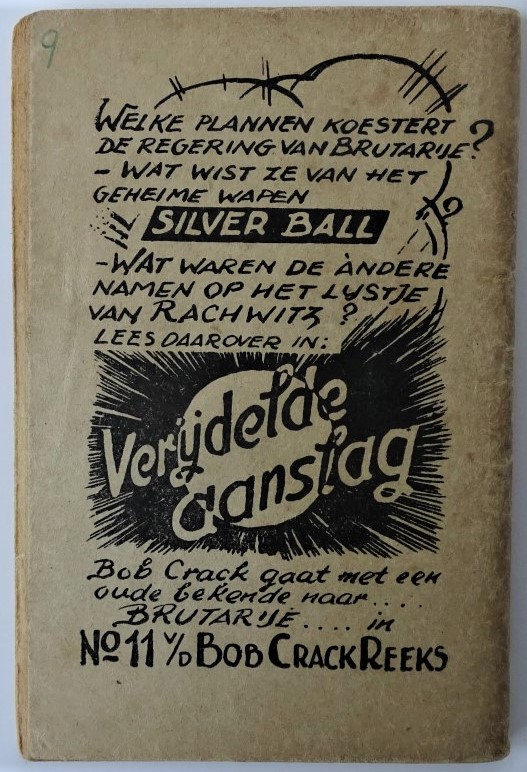 9
WELKE PLANNEN KOESTERT
DE REGERING VAN BRUTARIJE?
- WAT WIST ZE VAN HET
GEHEIME WAPEN
SILVER BALL?
- WAT WAREN DE ANDERE
NAMEN OP HET LIJSTJE
VAN RACHWITZ?
LEES DAAROVER IN:
Verijdelde
aanslag
Bob Crack gaat met een
oude bekende naar....
BRUTARIJE.... in
No 11 v/D BOB CRACK REEKS